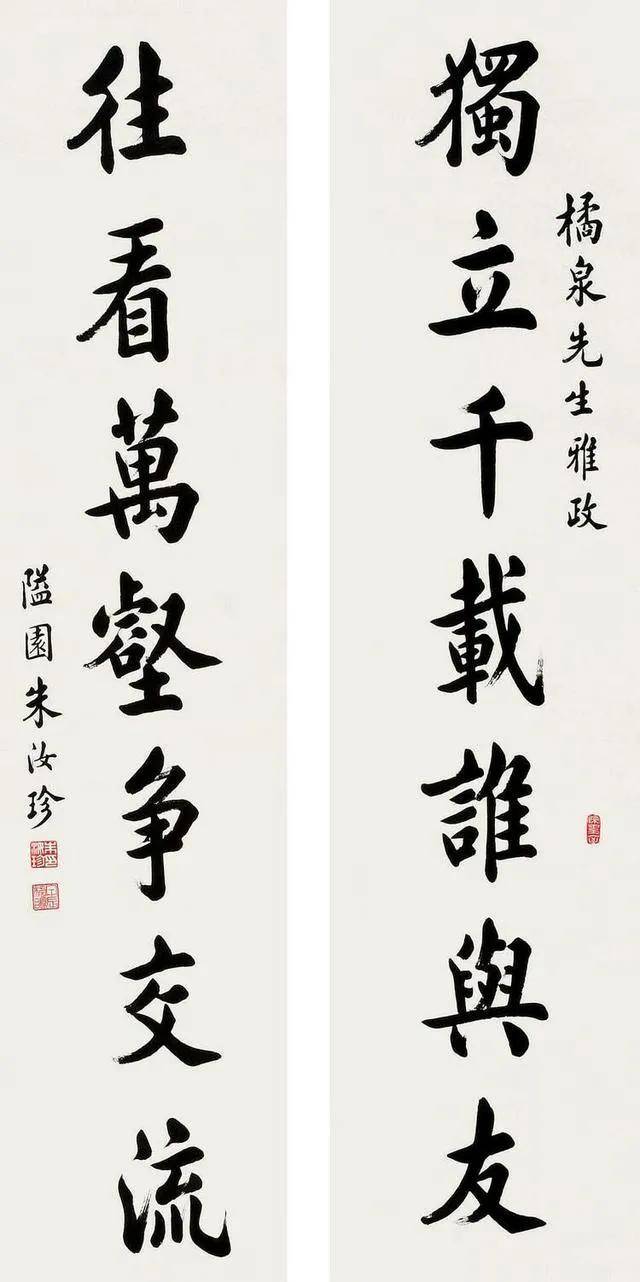 橘泉先生雅政
獨立千載誰與友
往看萬壑争交流
隘園朱汝珍